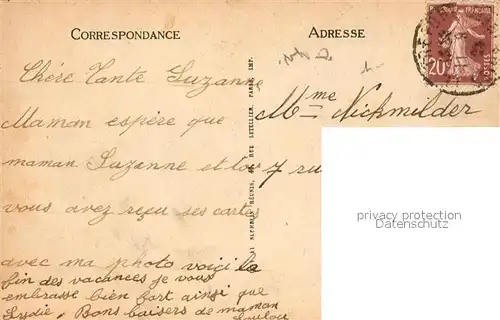 CORRESPONDANCE
ADRESSE
RÉPUBLIQUE FRANÇAISE
20c
POSTES
Chère Tante Suzanne
Maman espère que
maman Suzanne et
vous avez reçu ses cartes
avec ma photo voici la
fin des vacances je vous
embrasse bien fort ainsi que
Lydie. Bons baisers de maman
Loulou
RÉUNIS, RUE LETELLIER, PARIS IMP.
Mme Nickmilder
7 ru
privacy protection
Datenschutz